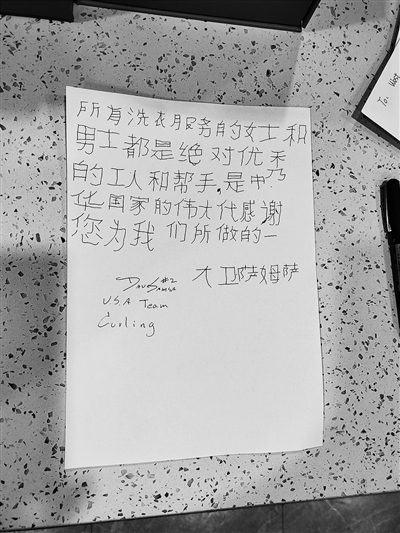 所有洗衣服务的女士和
男士都是绝对优秀
的工人和帮手,是中
华国家的伟大代感谢
您为我们所做的一
大卫萨姆萨
#2
USA Team
Curling
To: